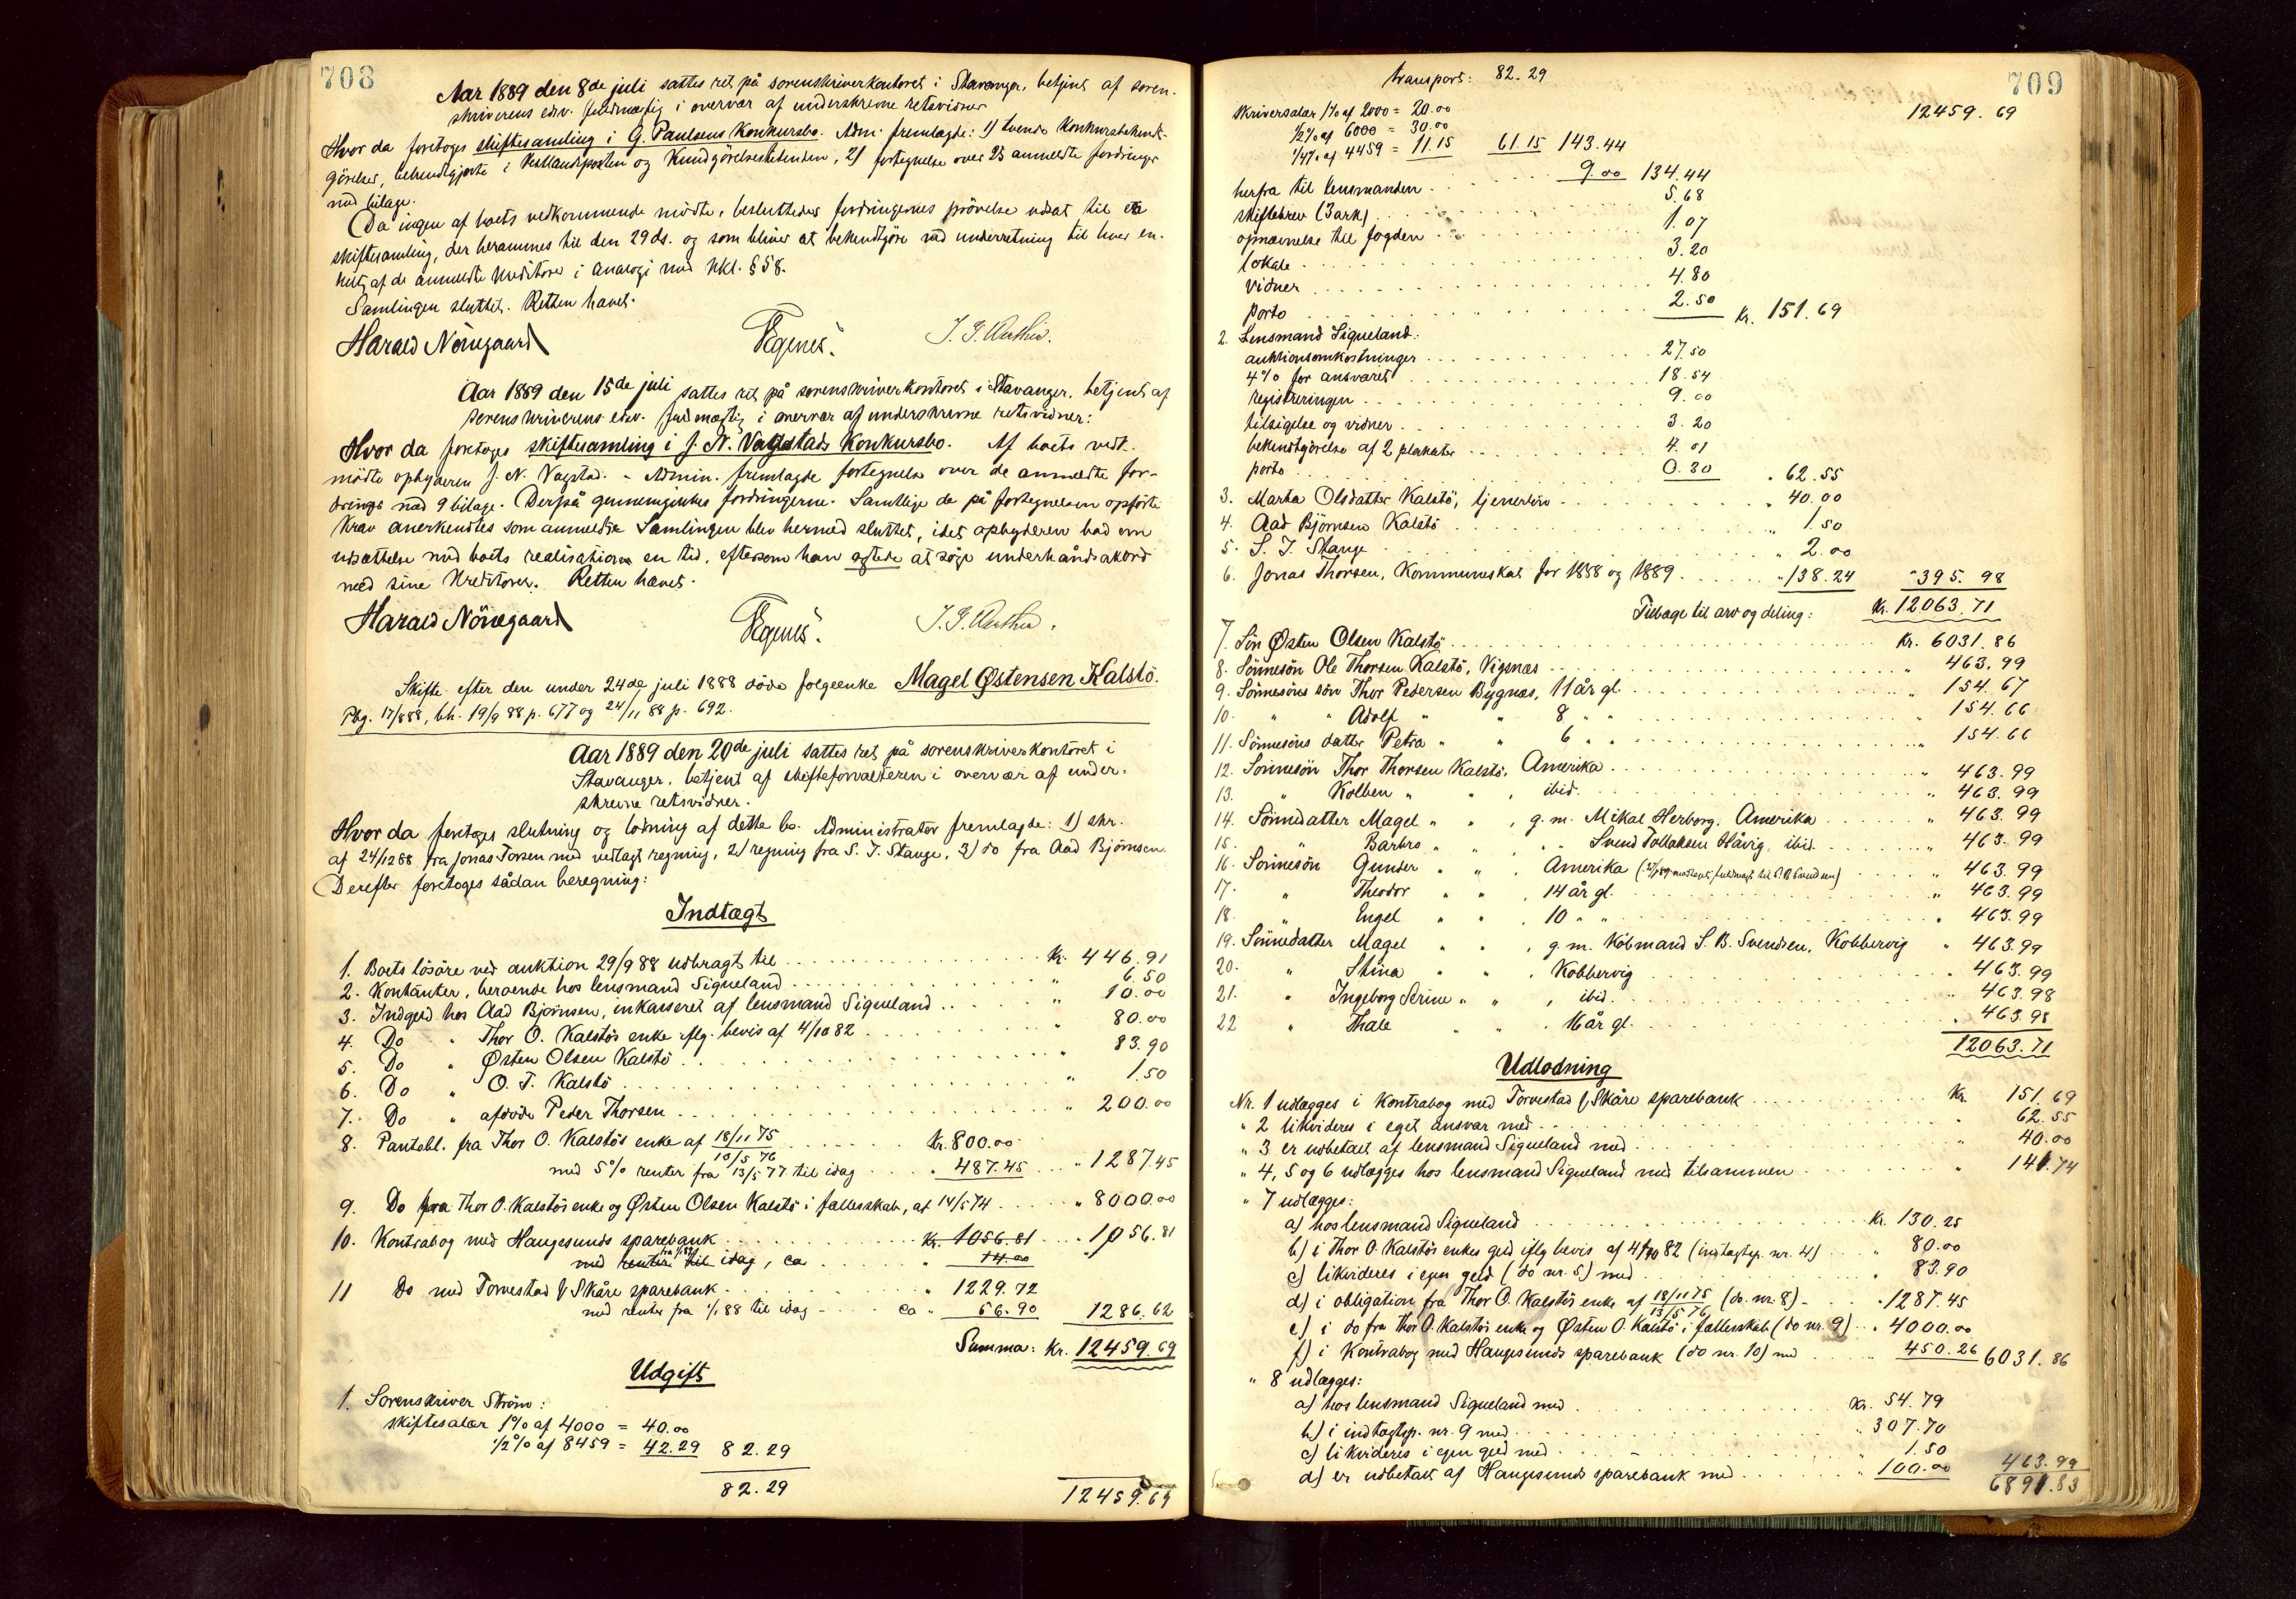 708
Aar 1889 den 8de juli sattes ret på sorenskriverkontoret i Stavanger, betjent af soren-
skriverens edsv. fuldmægtig i overvær af underskrevne retsvidner
Hvor da foretoges skiftesamling i G. Paulsens Konkursbo. Adm. fremlagde: 1) tvende Konkursbekjendt-
görelser, bekendtgjorte i Vestlandsposten og Kundgörelsestidenden, 2) fortegnelse over 23 anmeldte fordringer
med bilage.
Da ingen af boets vedkommende mödte, besluttedes fordringernes prövelse udsat til
skiftesamling, der berammes til den 29 ds. og som bliver at bekendtgöre med underretning til hver en-
kelt af de anmeldte kreditorer i analogi med kkl. § 58.
Samlingen sluttet. Retten hævet.
Harald Nörregaard
Egenes.
Aar 1889 den 15de juli sattes ret på sorenskriverkontoret i Stavanger, betjent af
sorenskriverens edsv. fuldmægtig i overvær af underskrevne retsvidner:
Hvor da foretoges skiftesamling i J. N. Vagstads Konkursbo. Af boets vedk.
mödte opbyderen J. N. Vagstad. - Admin. fremlagde fortegnelse over de anmeldte for-
dringer med 9 bilage. Derpå gennemgikkes fordringerne. Samtlige de på fortegnelsen opförte
krav anerkendtes som anmeldte. Samlingen blev hermed sluttet, idet opbyderen bad om
udsættelse med boets realisation en tid, eftersom han agtede at söge underhåndsakkord
med sine kreditorer. Retten hævet.
Harald Nörregaard
Egenes.
Skifte efter den under 24de juli 1888 döde folgeenke Magel Østensen Kalstö.
Pbg. 17/8 88, bh. 19/9 88 p. 677 og 24/11 88 p. 692.
Aar 1889 den 20de juli sattes ret på sorenskriverkontoret i
Stavanger, betjent af skifteforvalteren i overvær af under-
skrevne retsvidner.
Hvor da foretoges slutning og lodning af dette bo. Administrator fremlagde: 1) skr.
af 24/12 88 fra Jonas Torsen med vedlagt regning, 2) regning fra S. J. Stange, 3) do fra Aad Björnsen
Derefter foretoges sådan beregning:
Indtægt
1. Boets lösöre ved auktion 29/9 88 udbragt til Kr. 446.91
2. Kontanter, beroende hos lensmand Siqueland " 6.50
3. Indgeld hos Aad Björnsen, inkasseret af lensmand Siqueland " 10.00
4. Do " Thor O. Kalstös enke iflg. bevis af 4/10 82 " 80.00
5. Do " Østen Olsen Kalstö " 83.90
6. Do " O. T. Kalstö " 1.50
7. Do " afdöde Peder Thorsen " 200.00
8. Pantobl. fra Thor O. Kalstös enke af 18/11 75 13/5 76 Kr. 800.00
med 5% renter fra 13/5 77 til idag " 487.45 " 1287.45
9. Do fra Thor O. Kalstös enke og Østen Olsen Kalstö i fællesskab, af 14/5 74 " 8000.00
10. Kontrabog med Haugesunds sparebank Kr. 1056.81 1056.81
med renter til idag, ca " 14.00
11 Do med Torvestad & Skåre sparebank " 1229.72
med renter fra 1/1 88 til idag ca " 56.90 1286.62
Summa: Kr. 12459.69
Udgift
1. Sorenskriver Ström:
skiftesalær 1% af 4000 = 40.00
1/2% af 8459 = 42.29 82.29
82.29 12459.69
709
transport: 82.29 12459.69
skriversalær 1% af 2000 = 20.00
1/2% af 6000 = 30.00
1/4% af 4459 = 11.15 61.15 143.44
herfra til lensmanden 9.00 134.44
skiftebrev (3 ark) 5.68
opnævnelse til fogden 1.07
lokale 3.20
vidner 4.80
porto 2.50 Kr. 151.69
2. Lensmand Siqueland:
auktionsomkostninger 27.50
4% for ansvaret 18.54
registreringen 9.00
tilsigelse og vidner 3.20
bekendtgörelse af 2 plakater 4.01
porto 0.30 " 62.55
3. Marta Olsdatter Kalstö, tjenerlön " 40.00
4. Aad Björnsen Kalstö " 1.50
5. S. J. Stange " 2.00
6. Jonas Thorsen, Kommuneskat for 1888 og 1889 " 138.24 " 395.98
Tilbage til arv og deling: Kr. 12063.71
7. Sön Østen Olsen Kalstö Kr. 6031.86
8. Sönnesön Ole Thorsen Kalstö, Vigsnæs " 463.99
9. Sönnesöns sön Thor Pedersen Bygnæs, 11 år gl. " 154.67
10. " " Adolf " " 8 " " " 154.66
11. Sönnesöns datter Petra " " 6 " " " 154.66
12. Sönnesön Thor Thorsen Kalstö, Amerika " 463.99
13. " Kolben " " , ibid. " 463.99
14. Sönnedatter Magel " " , g. m. Mikal Herborg, Amerika " 463.99
15. " Barbro " " , " " Svend Tollaksen Håvig, ibid. " 463.99
16. Sönnesön Gunder " " , Amerika " 463.99
17. " Theodor " " , 14 år gl. " 463.99
18. " Engel " " , 10 " " " 463.99
19. Sönnedatter Magel " " , g. m. Köbmand S. B. Svendsen, Kobbervig " 463.99
20. " Stina " " , Kobbervig " 463.99
21. " Ingeborg Serine " " , ibid. " 463.98
22 " Thale " " , 16 år gl. " 463.98
12063.71
Udlodning
Nr. 1 udlægges i Kontrabog med Torvestad & Skåre sparebank Kr. 151.69
" 2 likvideres i eget ansvar med " 62.55
" 3 er udbetalt af lensmand Siqueland med " 40.00
" 4, 5 og 6 udlægges hos lensmand Siqueland med tilsammen " 141.74
" 7 udlægges:
a) hos lensmand Siqueland Kr. 130.25
b) i Thor O. Kalstös enkes geld iflg bevis af 4/10 82 (indtægtsp. nr. 4) " 80.00
c) likvideres i egen geld (do nr. 5) med " 83.90
d) i obligation fra Thor O. Kalstös enke af 18/11 75 13/5 76 (do. nr. 8) " 1287.45
e) i do fra Thor O. Kalstös enke og Østen O. Kalstö i fællesskab (do nr. 9) " 4000.00
f) i Kontrabog med Haugesunds sparebank (do nr. 10) med " 450.26 6031.86
" 8 udlægges:
a) hos lensmand Siqueland med Kr. 54.79
b) i indtægtsp. nr. 9 med " 307.70
c) likvideres i egen geld med " 1.50
d) er udbetalt af Haugesunds sparebank med " 100.00 463.99
6891.83